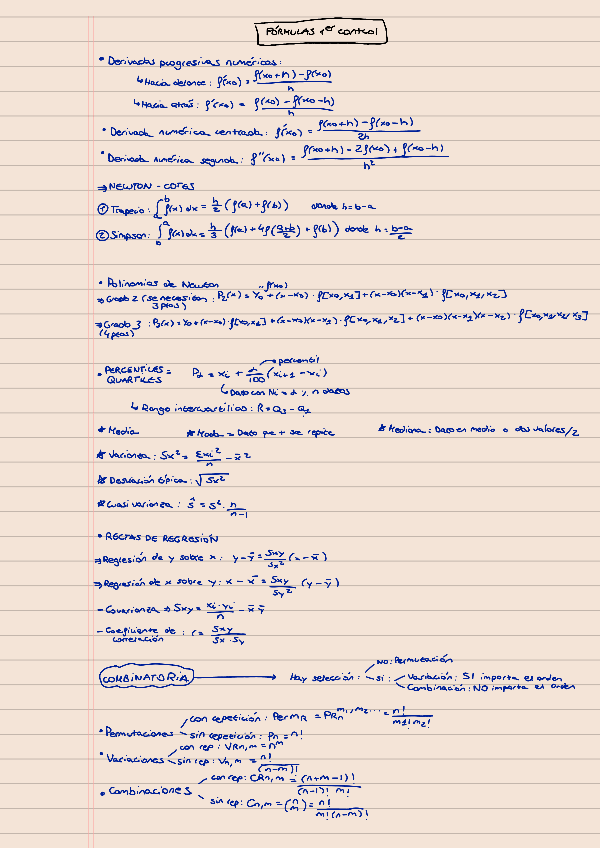 FÓRMULAS 1er control
• Derivadas progresivas numéricas:
↳ Hacia delante: f'(x0) = f(x0+h) - f(x0) / h
↳ Hacia atrás: f'(x0) = f(x0) - f(x0-h) / h
• Derivada numérica centrada: f'(x0) = f(x0+h) - f(x0-h) / 2h
• Derivada numérica segunda: f''(x0) = f(x0+h) - 2f(x0) + f(x0-h) / h²
⇒ NEWTON - COTES
① Trapecio: ∫ₐᵇ f(x) dx = h/2 (f(a) + f(b)) donde h = b-a
② Simpson: ∫ f(x) dx = h/3 (f(a) + 4f(a+b/2) + f(b)) donde h = b-a/2
• Polinomios de Newton
→ Grado 2 (se necesitan 3 ptos): P2(x) = Y0 + (x-x0) · f[x0, x1] + (x-x0)(x-x1) · f[x0, x1, x2]
→ f(x0)
→ Grado 3 (4 ptos): P3(x) = Y0 + (x-x0) · f[x0, x1] + (x-x0)(x-x1) · f[x0, x1, x2] + (x-x0)(x-x1)(x-x2) · f[x0, x1, x2, x3]
• PERCENTILES = QUARTILES
→ percentil
Pα = xi + α/100 (xi+1 - xi)
↳ Dato con Ni = α % n datos
↳ Rango intercuartílico: R = Q3 - Q1
* Media * Moda = Dato que + se repite * Mediana: Dato en medio o dos valores/2
* Varianza: Sx² = Σxi²/n - x̄²
* Desviación típica: √Sx²
* Cuasivarianza: ŝ = s² · n/n-1
• RECTAS DE REGRESIÓN
⇒ Regresión de y sobre x: y - ȳ = Sxy/Sx² (x - x̄)
⇒ Regresión de x sobre y: x - x̄ = Sxy/Sy² (y - ȳ)
- Covarianza ⇒ Sxy = xi · yi/n - x̄ ȳ
- Coeficiente de correlación: r = Sxy/Sx · Sy
COMBINATORIA → Hay selección:
NO: Permutación
Si: Variación: SI importa el orden
Combinación: NO importa el orden
• Permutaciones
con repetición: PermR = PRn^m1, m2... = n!/m1! m2!
sin repetición: Pn = n!
• Variaciones
con rep: VRn,m = n^m
sin rep: Vn,m = n!/(n-m)!
• Combinaciones
con rep: CRn,m = (n+m-1)!/(n-1)! m!
sin rep: Cn,m = (n m) = n!/m!(n-m)!